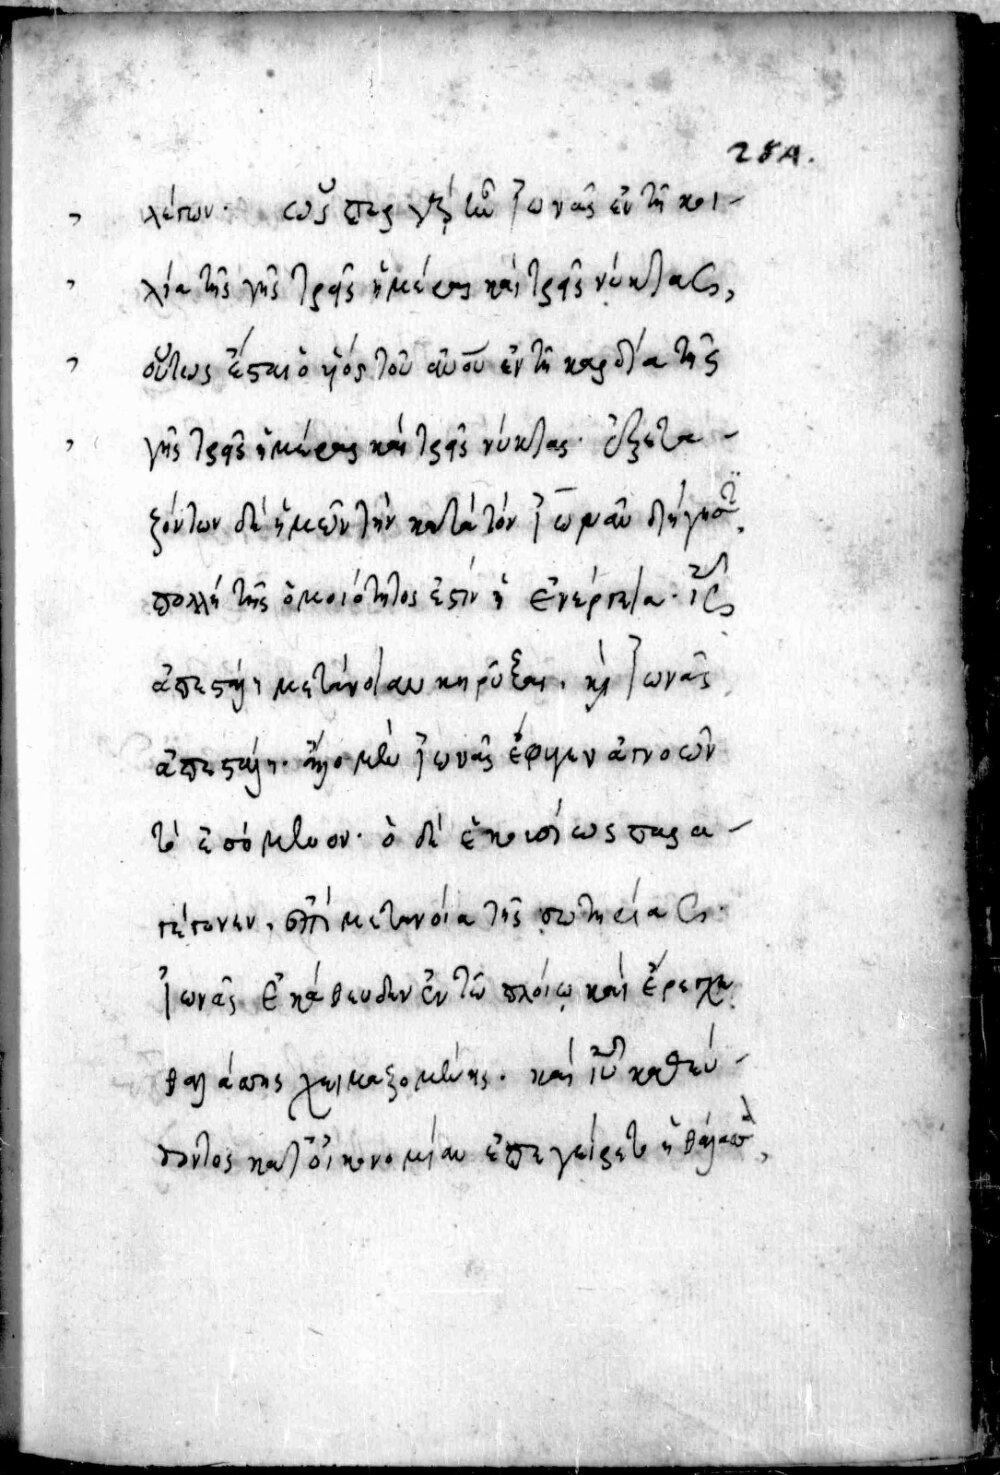 281.
λέγων· ὥσπερ γὰρ ἦν Ἰωνᾶς ἐν τῆ κοι-
λία τῆς γῆς τρεῖς ἡμέρας καὶ τρεῖς νύκτας,
οὕτως ἔσται ὁ υἱός τοῦ ἀνου ἐν τῆ καρδία τῆς
γῆς τρεῖς ἡμέρας καὶ τρεῖς νύκτας. ἐξετα-
ζόντων δὲ ἡμῶν τὴν κατὰ τόν Ἰωνᾶν διήγησιν
πολλή τῆς ὁμοιότητος ἐστίν ἡ ἐνέργεια. ις
ἀπεστάλη μετάνοιαν κηρῦξαι. καὶ Ἰωνᾶς
ἀπεστάλη. ἀλλ' ὁ μὲν Ἰωνᾶς ἔφυγεν ἀγνοῶν
τὸ ἐσόμενον. ὁ δὲ ἑκουσίως παρα-
γέγονεν, ἐπὶ μετανοία τῆς σωτηρίας.
Ἰωνᾶς ἐκάθευδεν ἐν τῶ πλοίω καὶ ἔρεγχε
θαλάσσης χειμαζομένης. καὶ ιυ καθεύ-
δοντος κατ' οἰκονομίαν ἐπεγείρετο ἡ θάλασσα,